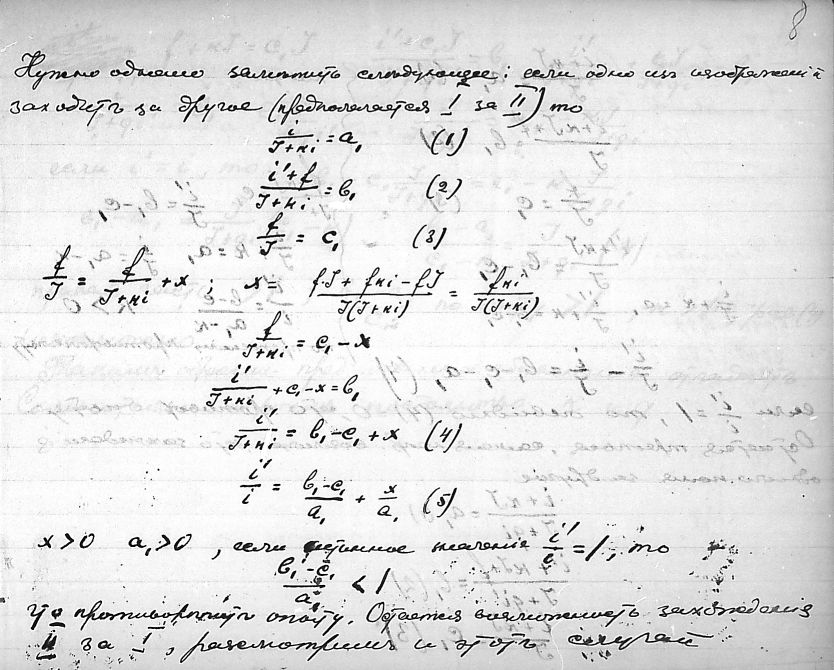 8
Нужно однако заметить следующее: если одно из изображений
заходитъ за другое (предполагается I за II) то
i/(J+кi) = a₁ (1)
(i'+f)/(J+кi) = b₁ (2)
f/J = c₁ (3)
f/J = f/(J+кi) + x ; x = (fJ + fкi − fJ)/(J(J+кi)) = fкi/(J(J+кi))
f/(J+кi) = c₁ − x
i'/(J+кi) + c₁ − x = b₁
i'/(J+кi) = b₁ − c₁ + x (4)
i'/i = (b₁−c₁)/a₁ + x/a₁ (5)
x>0 a₁>0 , если истинное значение i'/i = 1, то
(b₁−c₁)/a₁ < 1
что противоречитъ опыту. Остается возможность захождения
II за I, разсмотримъ и этотъ случай